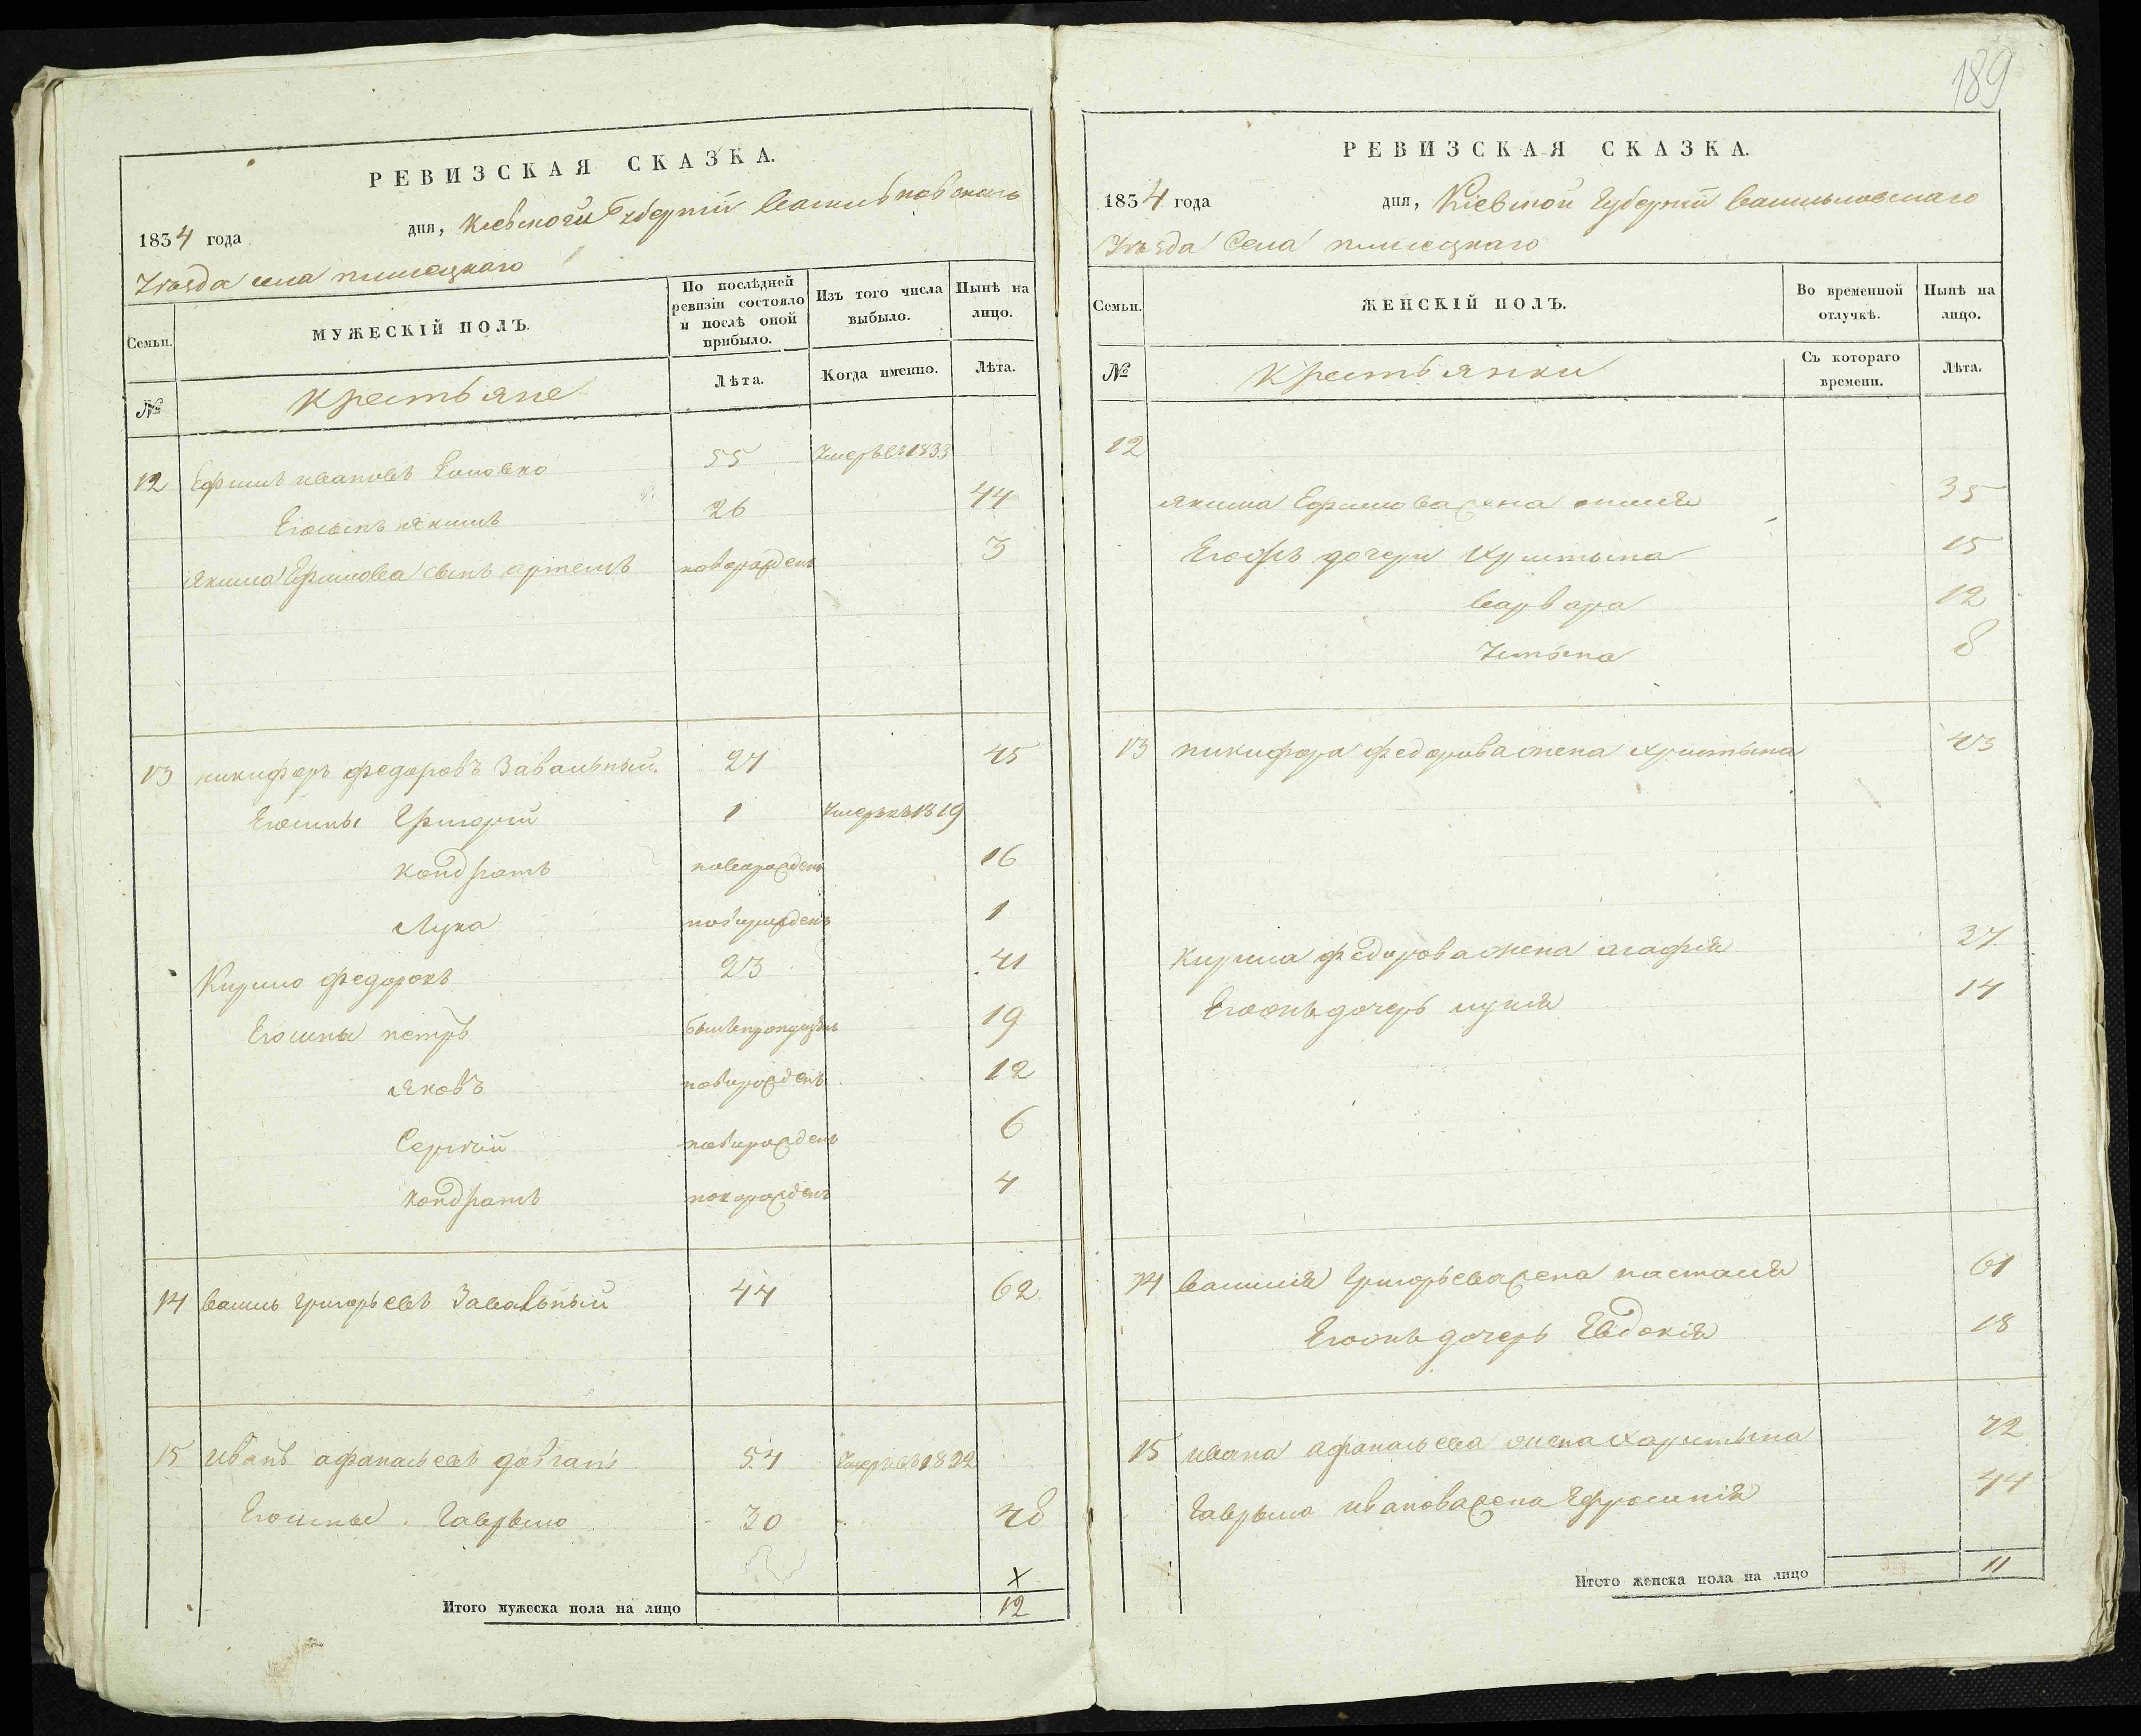 189
РЕВИЗСКАЯ СКАЗКА.
1834 года дня, Киевской Губернии Васильковскаго
Уезда села
Семьи.
МУЖЕСКІЙ ПОЛЪ.
По послѣдней ревизіи состояло и послѣ оной прибыло.
Изъ того числа выбыло.
Нынѣ на лицо.
№
Крестьяне
Лѣта.
Когда именно.
Лѣта.
12 Ефимъ Ивановъ 55 Умеръ въ 1833
Его сынъ Якимъ 26 44
Якима Ефимова сынъ Артемъ новорожденъ 3
13 Никифоръ Федоровъ Завальный 27 45
Его сыны Григорій 1 Умеръ въ 1819
Кондратъ новорожденъ 16
Лука новорожденъ 1
Кирило Федоровъ 23 41
Его сыны Петръ былъ пропущенъ 19
Яковъ новорожденъ 12
Сергій новорожденъ 6
Кондратъ новорожденъ 4
14 Василь Григорьевъ Завальный 44 62
15 Иванъ Афанасьевъ Довгань 54 Умеръ въ 1822
Его сыны Гаврыло 30 48
Итого мужеска пола на лицо 12
РЕВИЗСКАЯ СКАЗКА.
1834 года дня, Киевской Губернии Васильковскаго
Уезда Села
Семьи.
ЖЕНСКІЙ ПОЛЪ.
Во временной отлучкѣ.
Нынѣ на лицо.
№
Крестьянки
Съ котораго времени.
Лѣта.
12
Якима Ефимова жена 35
Его дочери Христына 15
Варвара 12
Устына 8
13 Никифора Федорова жена Христына 43
Кирила Федорова жена Агафія 37
дочерь 14
14 Василія Григорьева жена Настасія 61
дочерь Евдокія 18
15 Ивана Афанасьева жена 72
Гаврыла Иванова жена Ефросинія 44
Итого женска пола на лицо 11